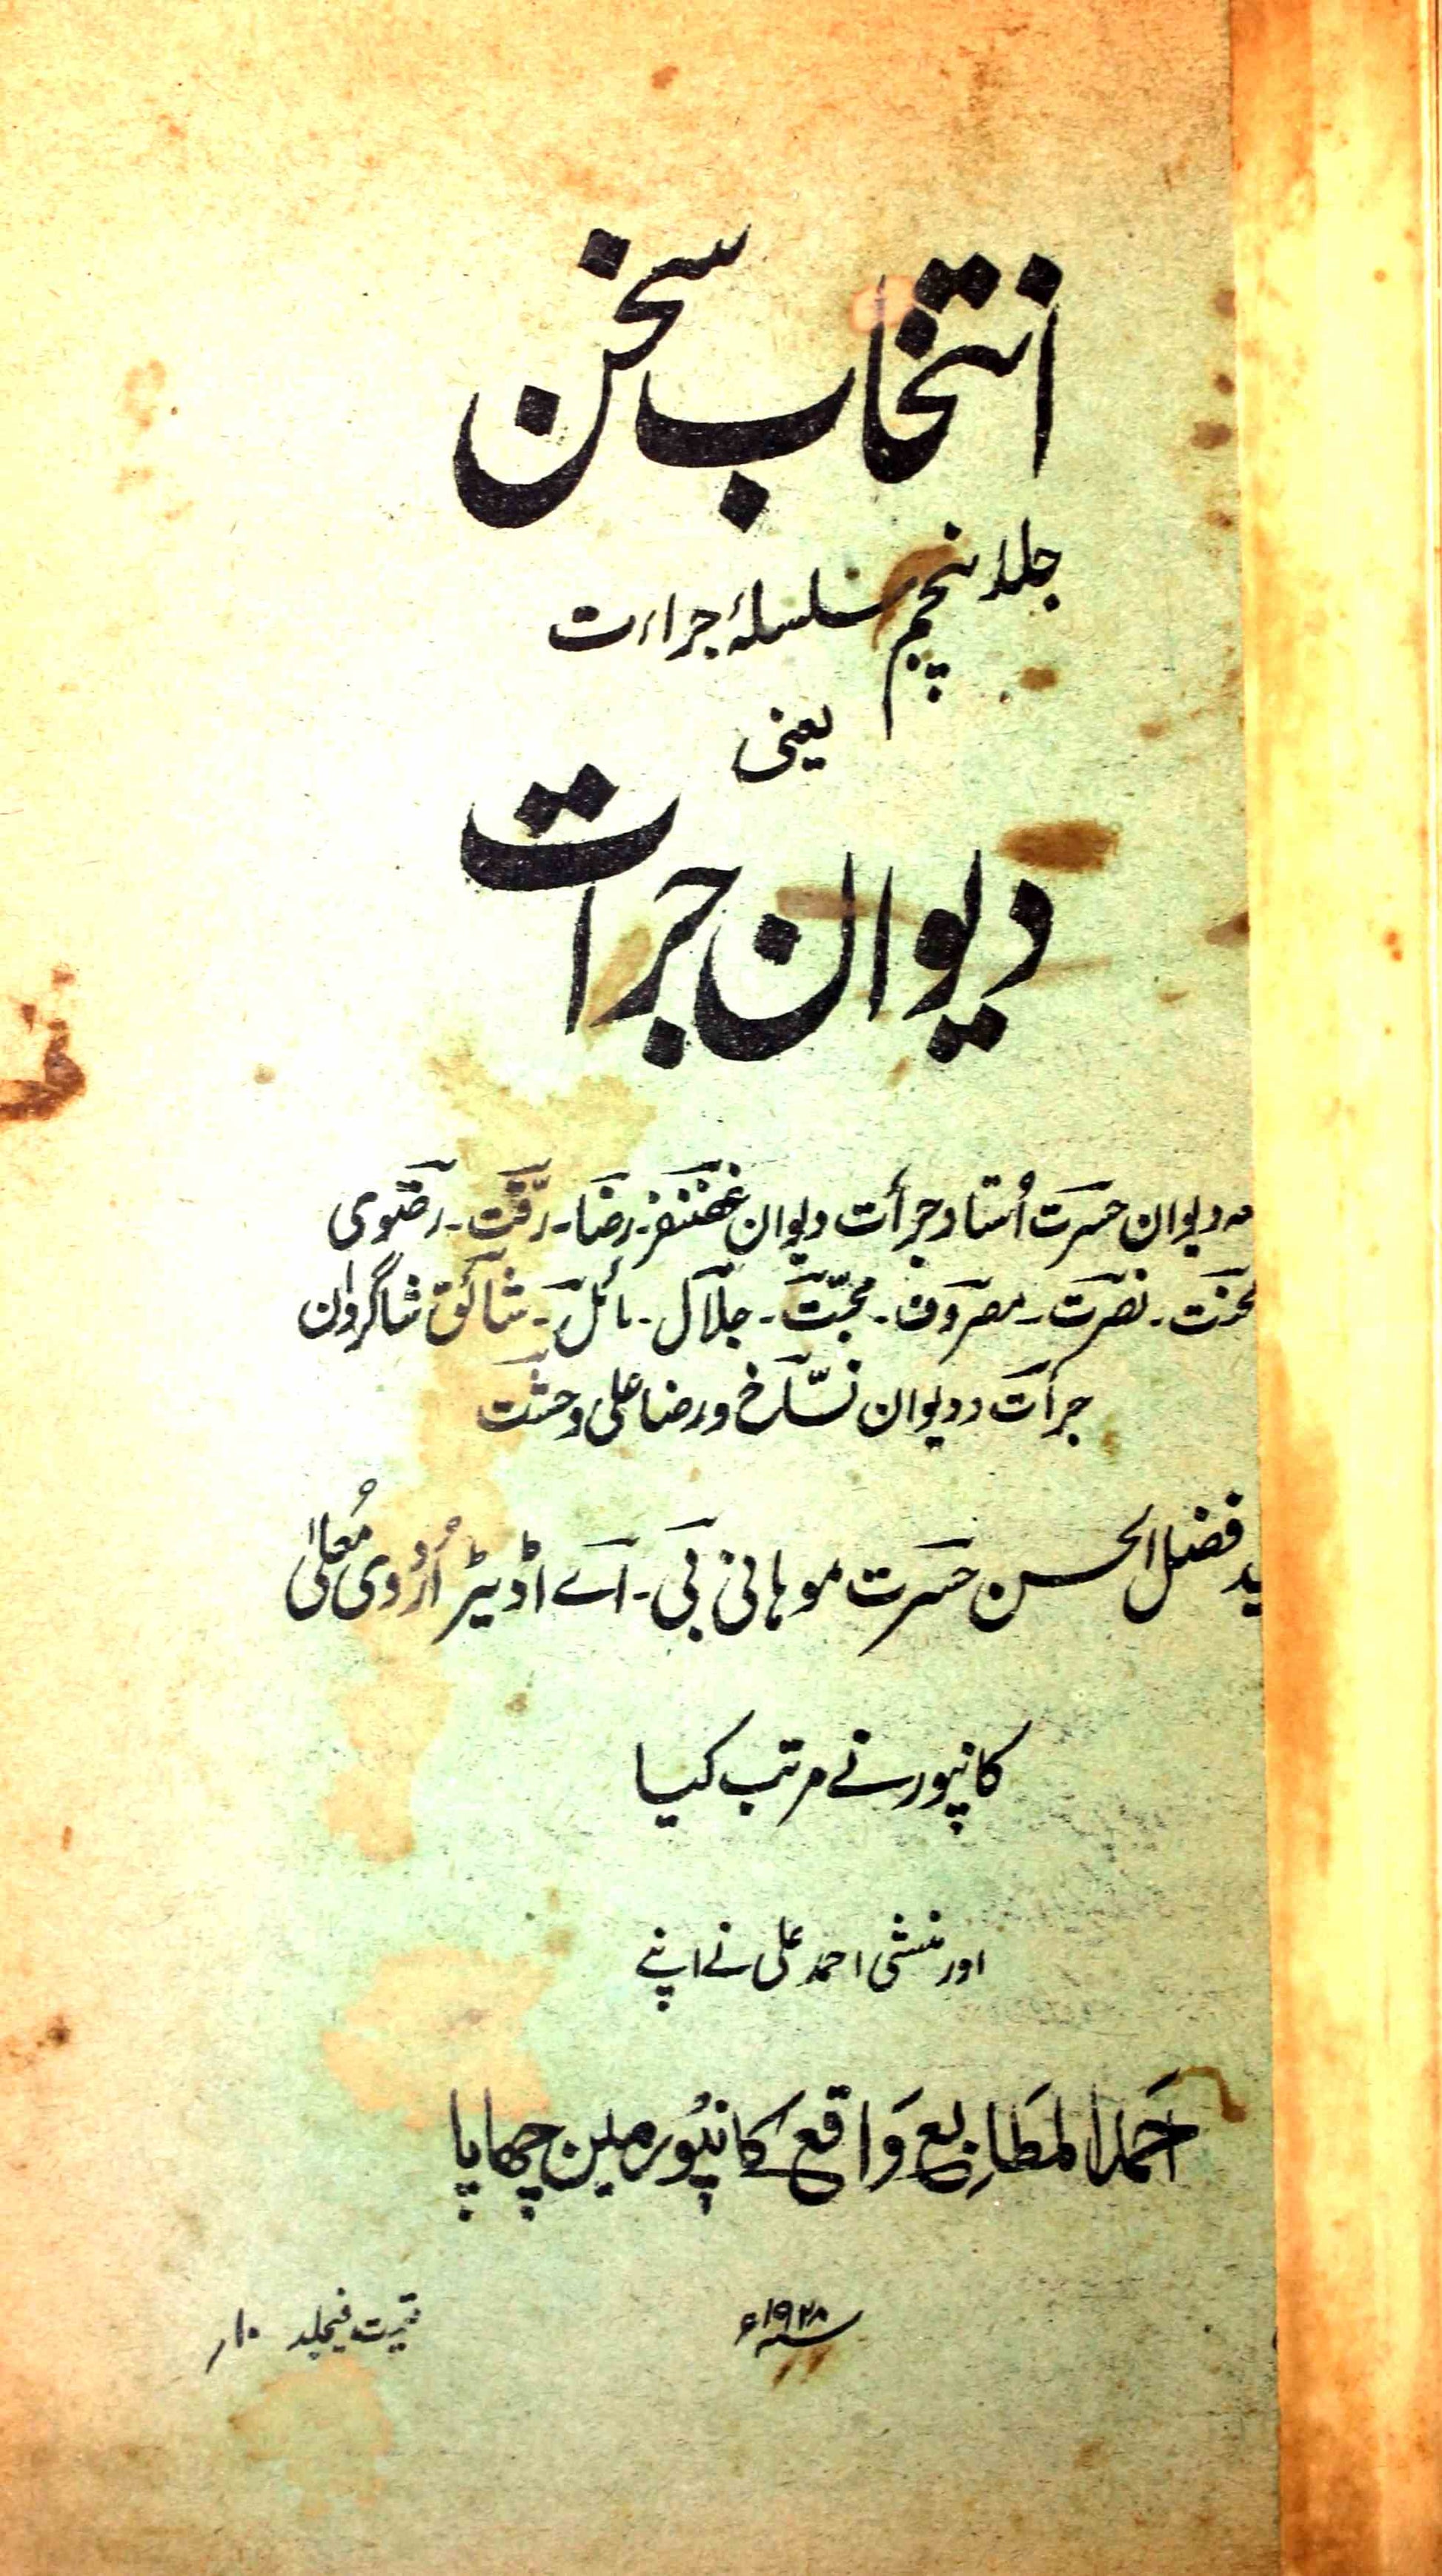 انتخاب سخن
جلد پنجم سلسلۂ جراءت
یعنی
دیوان جرات
دیوان حسرت اُستاد جرأت دیوان غضنفر۔ رضا۔ رقت۔ رضوی
نصرت۔ مصروف۔ محبّت۔ جلال۔ مائل۔ شائق شاگردان
جرات و دیوان نسّاخ و رضا علی وحشت
فضل الحسن حسرت موہانی بی۔ اے اڈیٹر اُردوی مُعلیٰ
کانپور نے مرتب کیا
اور منشی احمد علی نے اپنے
احمد المطابع واقع کانپور مین چھاپا
سنہ ۱۹۲۸ء
قیمت فیجلد ۱۰؍